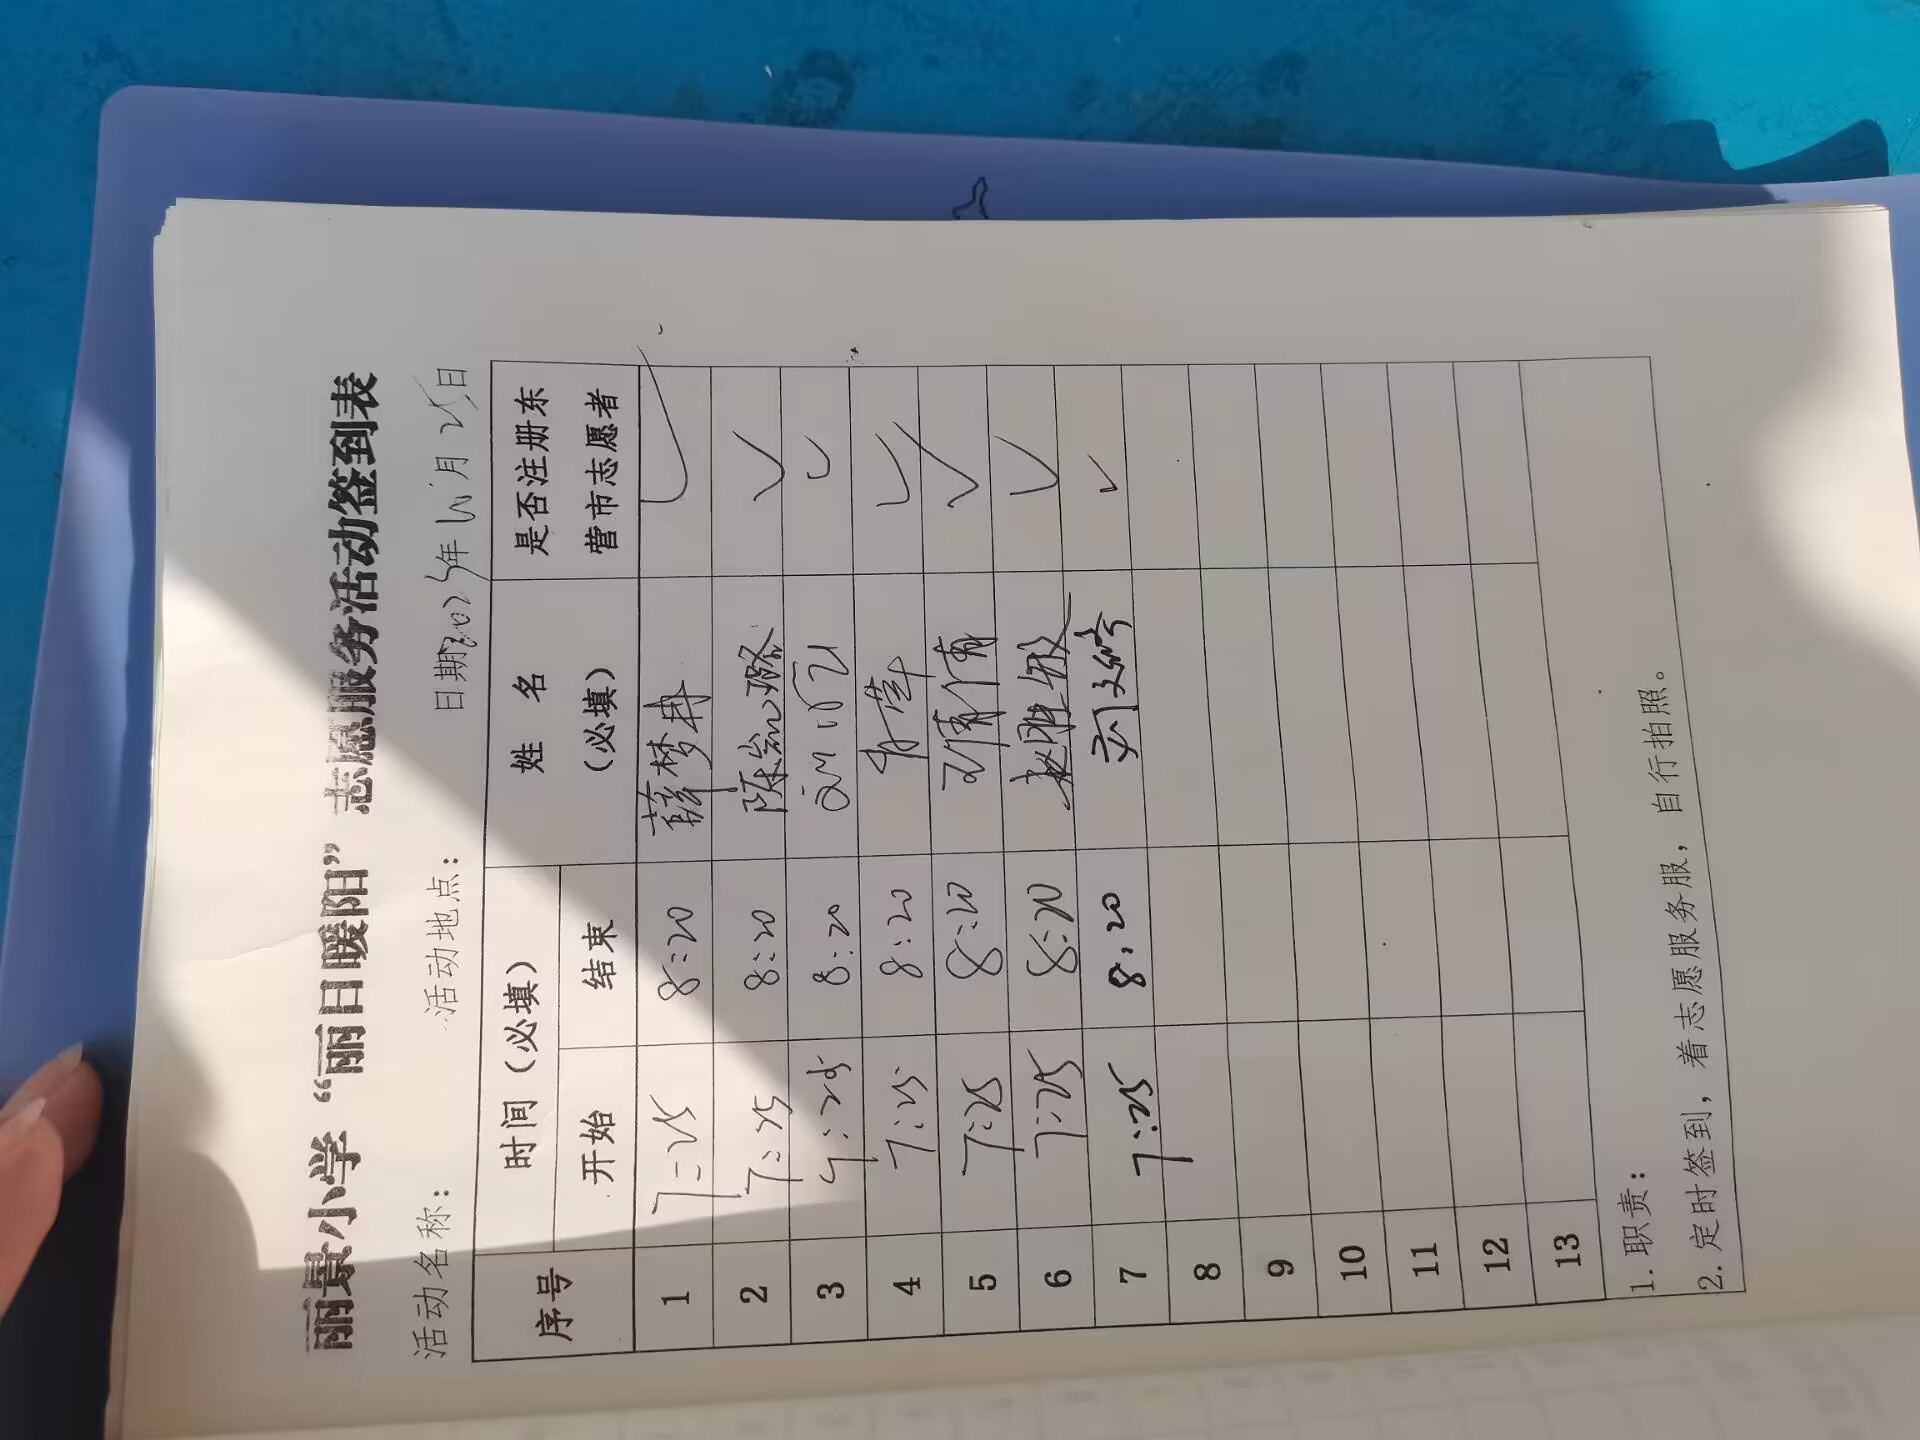 丽景小学“丽日暖阳”志愿服务活动签到表
活动名称： 活动地点： 日期2025年 月25日
序号 时间（必填） 姓 名（必填） 是否注册东营市志愿者
开始 结束
1 7:25 8:20 薛梦冉 ✓
2 7:25 8:20 陈 璐 ✓
3 7:25 8:20 ✓
4 7:25 8:20 ✓
5 7:25 8:20 邓倩倩 ✓
6 7:25 8:20 赵胜男 ✓
7 7:25 8:20 刘文婷 ✓
8
9
10
11
12
13
1.职责：
2.定时签到，着志愿服务服，自行拍照。